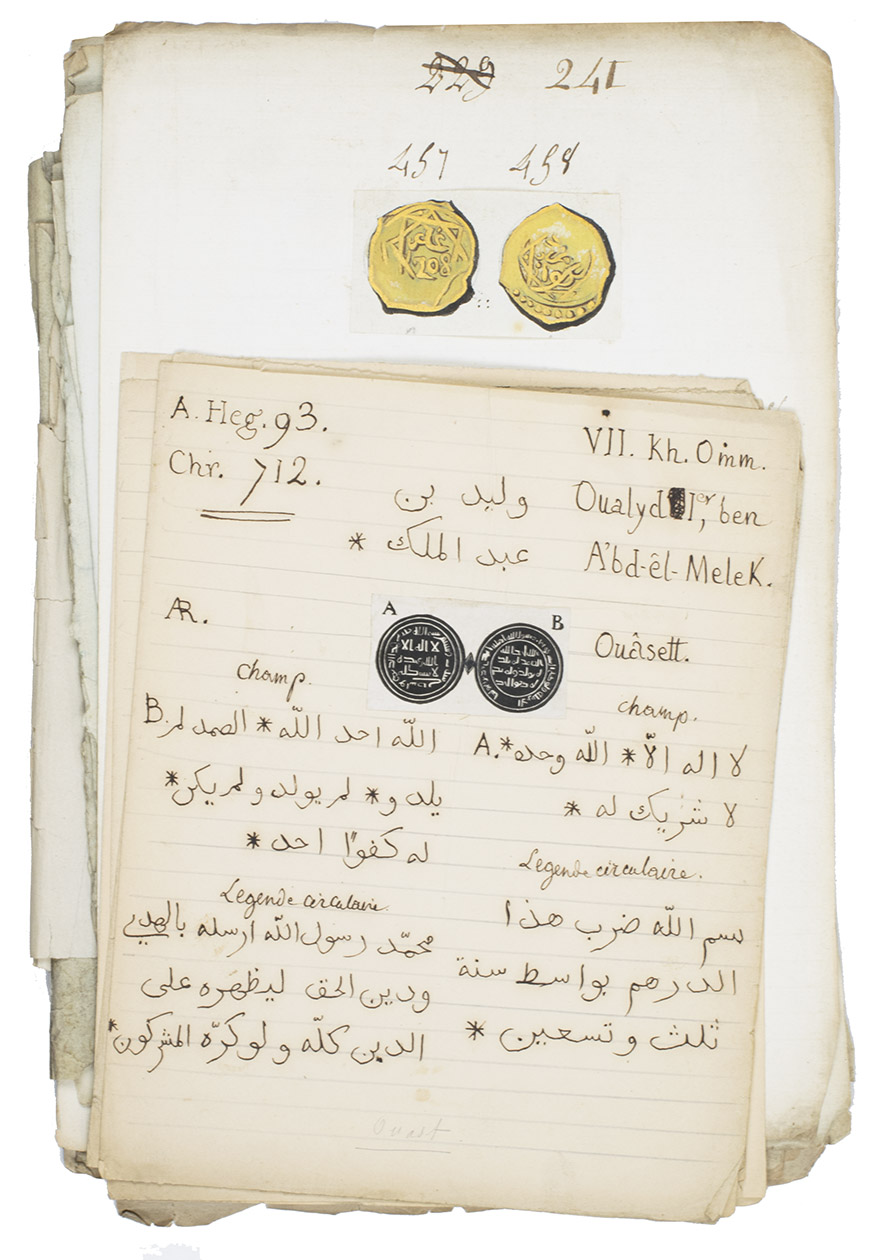 241
457 458
A. Heg. 93.
VII. Kh. Omm.
Chr. 712.
وليد بن
Oualyd Ier, ben
عبد الملك *
A'bd-êl-Melek.
AR.
A B
Ouâsett.
champ.
champ.
B. الله احد الله * الصمد لم
يلد و * لم يولد و لم يكن *
له كفوًا احد *
A. لا اله الّا * الله وحده *
لا شريك له *
Légende circulaire.
بسم الله ضرب هذا
الدرهم بواسط سنة
ثلث و تسعين *
Légende circulaire.
محمّد رسول الله ارسله بالهدى
ودين الحق ليظهره على
الدين كلّه و لو كرّه المشركون *